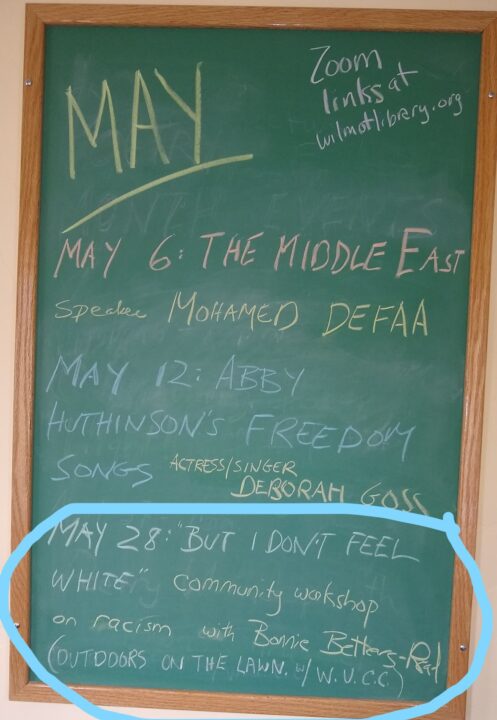 MAY
Zoom
links at
wilmotlibrary.org
MAY 6: THE MIDDLE EAST
Speaker MOHAMED DEFAA
MAY 12: ABBY
HUTHINSON'S FREEDOM
SONGS ACTRESS/SINGER
DEBORAH GOSS
MAY 28: "BUT I DON'T FEEL
WHITE" community workshop
on racism with Bonnie Betters-Reed
(OUTDOORS ON THE LAWN. w/ W.U.C.C.)